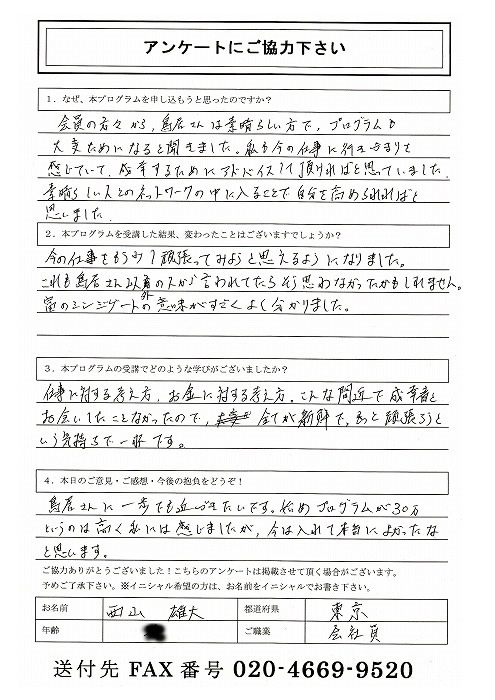 アンケートにご協力下さい
1．なぜ、本プログラムを申し込もうと思ったのですか？
会員の方々から、鳥居さんは素晴らしい方で、プログラムも
大変ためになると聞きました。私も今の仕事に行きづまりを
感じていて、成幸するためにアドバイス頂ければと思っていました。
素晴らしい人とのネットワークの中に入ることで自分を高められればと
思いました。
2．本プログラムを受講した結果、変わったことはございますでしょうか？
今の仕事をもう少し頑張ってみようと思えるようになりました。
これも鳥居さん以外の人から言われてたらそう思わなかったかもしれません。
富のシンジゲートの意味がすごくよく分かりました。
3．本プログラムの受講でどのような学びがございましたか？
仕事に対する考え方、お金に対する考え方。こんな間近で成幸者と
お会いしたことなかったので、全てが新鮮で、もっと頑張ろうと
いう気持ちで一杯です。
4．本日のご意見・ご感想・今後の抱負をどうぞ！
鳥居さんに一歩でも近づきたいです。始めプログラムが30万
というのは高く私には感じましたが、今は入れて本当によかったな
と思います。
ご協力ありがとうございました！こちらのアンケートは掲載させて頂く場合がございます。
予めご了承下さい。※イニシャル希望の方は、お名前をイニシャルでお書き下さい。
お名前 西山 雄大 都道府県 東京
年齢 ご職業 会社員
送付先 FAX 番号 020-4669-9520